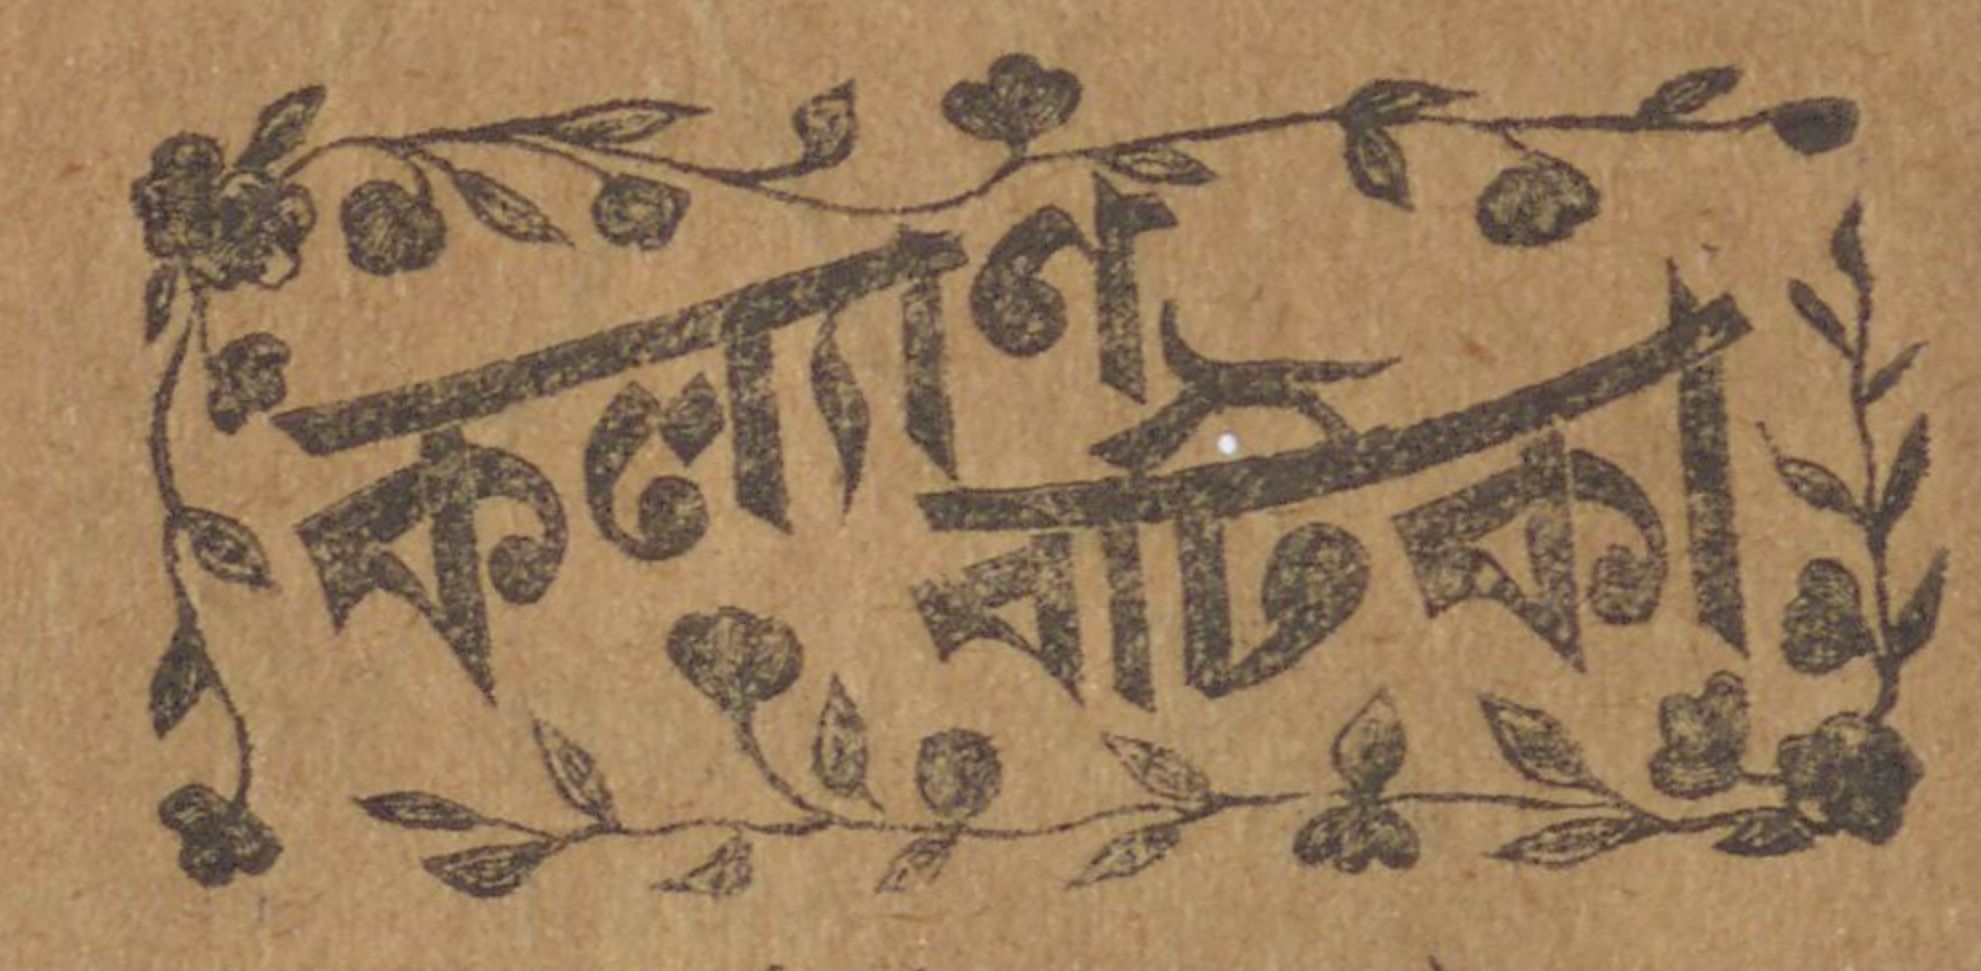 কল্যাণ
বটিকা